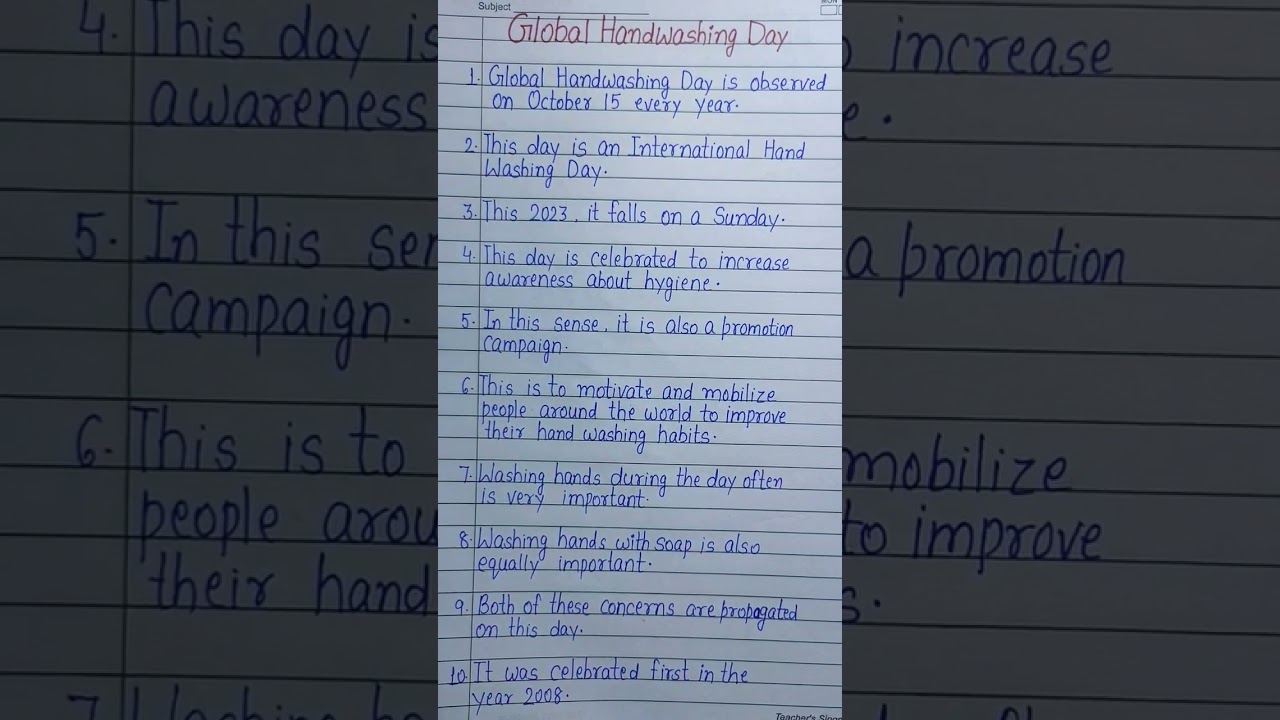 Subject
Global Handwashing Day
1. Global Handwashing Day is observed
on October 15 every year.
2. This day is an International Hand
Washing Day.
3. This 2023, it falls on a Sunday.
4. This day is celebrated to increase
awareness about hygiene.
5. In this sense, it is also a promotion
campaign.
6. This is to motivate and mobilize
people around the world to improve
their hand washing habits.
7. Washing hands during the day often
is very important.
8. Washing hands with soap is also
equally important.
9. Both of these concerns are propagated
on this day.
10. It was celebrated first in the
year 2008.
4. This day is
awareness
5. In this
campaign.
6. This is to
people
their hand
increase
a promotion
mobilize
to improve